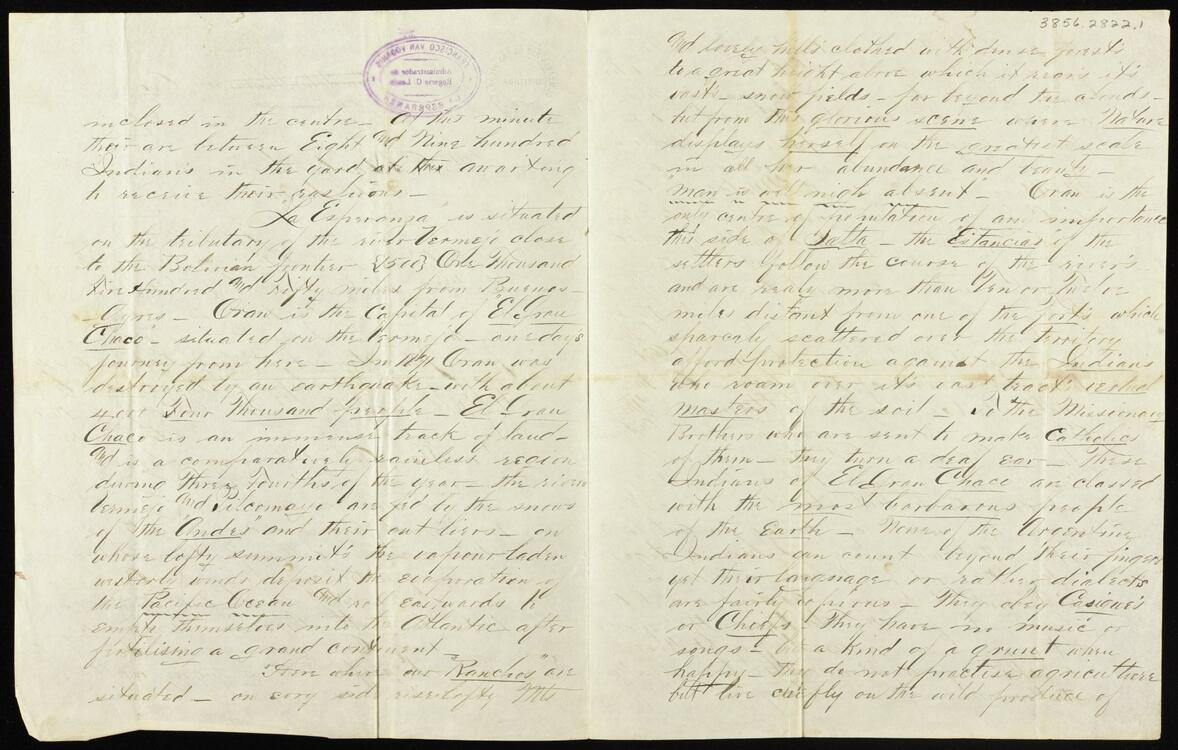 3856.2822.1
FRANCISCO VAN VOO
Administrador de
LA ESPERANZA
inclosed in the centre - At this minute
their are between Eight and Nine hundred
Indians in the yard awaiting
to receive their rashions -
La Esperanza is situated
on the tributary of the river Vermejo close
to the Bolivian frontier {1500} One Thousand
Five Hundred and Fifty miles from Buenos-
-Ayres - Oran is the Capital of "El Gran
Chaco" - situated on the Vermejo - one day's
journey from here - In Oran was
destroyed by an earthquake - with about
4,000 Four Thousand people - El Gran
Chaco is an immense track of land -
and is a comparatively rainless region
during Three Fourths of the year - the rivers
Vermejo and Pilcomayo are fed by the snows
of the "Andes" and their out liers - on
whose lofty summit's the vapour laden
westerly winds deposit the evaporation of
the Pacific Ocean and roll eastwards to
empty themselves into the Atlantic after
fertilising a grand continent -
From where our "Ranchos" are
situated - on every side rise lofty
and lovely hills clothed with dense forests
to a great height above which it rears it's
vast - snow fields - far beyond the clouds -
but from this glorious scene where Nature
displays herself on the greatest scale
in all her abundance and beauty -
man is well nigh absent - Oran is the
only centre of population of any importance
this side of Salta - the "Estancias" of the
settlers follow the course of the river's
and are rearly more than Ten or Twelve
miles distant from one of the forts which
sparcely scattered over the territory
afford protection against the Indians
who roam over it's vast tracts
masters of the soil - To the Missionary
Brothers who are sent to make Catholics
of them - they turn a deaf ear - These
Indians of El Gran Chaco are classed
with the most barbarous people
of the Earth - None of the Argentine
Indians can count beyond their fingers
yet their language or rather dialects
are fairly copious - They obey Casique's
or Chiefs - They have no music or
songs - but a kind of a grunt when
happy - They do not practise agriculture
but live chiefly on the wild produce of